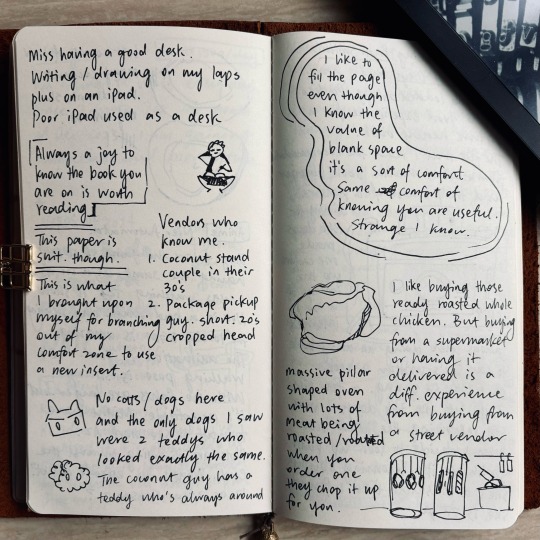 Miss having a good desk.
Writing / drawing on my laps
plus on an ipad.
Poor iPad used as a desk
Always a joy to
know the book you
are on is worth
reading
This paper is
shit. though.
This is what
I brought upon
myself for branching
out of my
comfort zone to use
a new insert.
Vendors who
know me.
1. Coconut stand
couple in their
30's
2. Package pickup
guy. short. 20's
cropped head
No cats / dogs here
and the only dogs I saw
were 2 teddys who
looked exactly the same.
The coconut guy has a
teddy who's always around
I like to
fill the page
even though
I know the
value of
blank space
it's a sort of comfort
same comfort of
knowing you are useful.
Strange I know.
I like buying those
ready roasted whole
chicken. But buying
from a supermarket
or having it
delivered is a
diff. experience
from buying from
a street vendor
massive pillar
shaped oven
with lots of
meat being
roasted / roasted
when you
order one
they chop it up
for you.